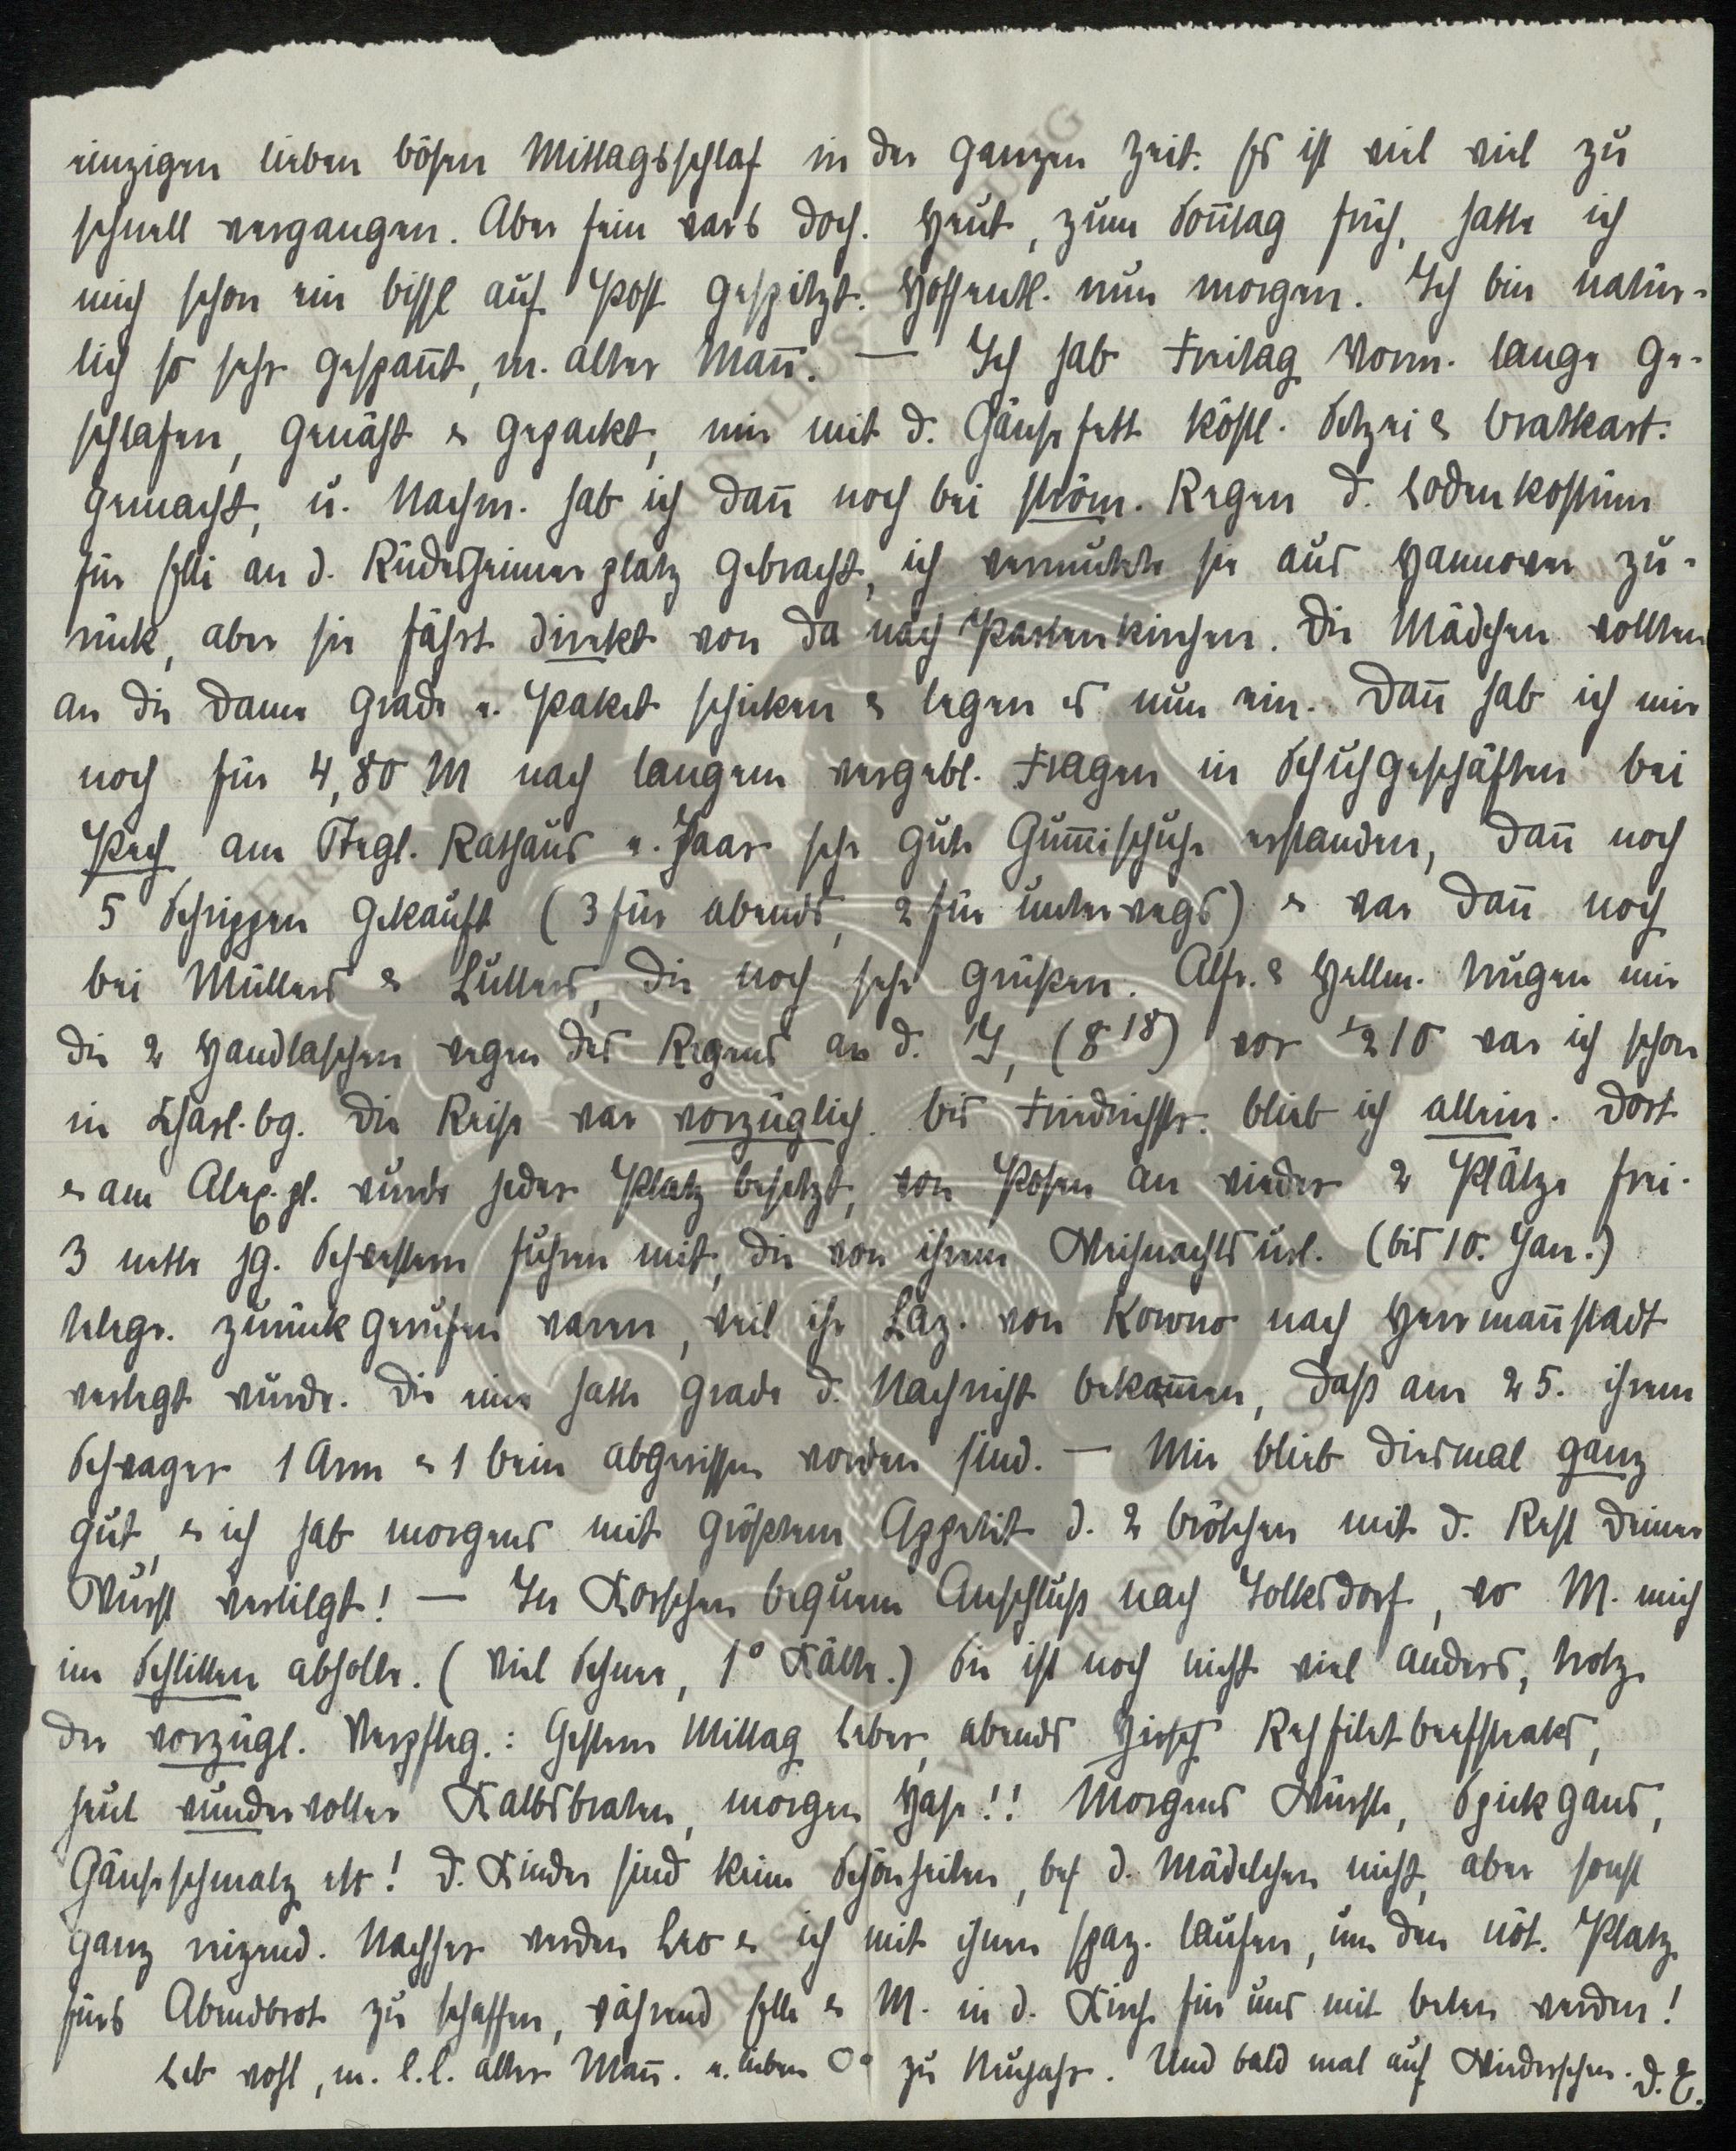 einzigen lieben bösen Mittagsschlaf in der ganzen Zeit. Es ist viel viel zu
schnell vergangen. Aber fein wars doch. Heut, zum Soñtag früh, hatte ich
mich schon ein bissl auf Post gespitzt. Hoffentl. nun morgen. Ich bin natür-
lich so sehr gespañt, m. alter Mañ. — Ich hab Freitag Vorm. lange ge-
schlafen, genäht & gepackt, mir mit d. Gänsefett köstl. Setzei & Bratkart.
gemacht, u. Nachm. hab ich dañ noch bei ström. Regen d. Lodenkostüm
für Elli an d. Rüdesheimerplatz gebracht, ich vermutete sie aus Hannover zu-
rück, aber sie fährt direkt von da nach Partenkirchen. Die Mädchen wollten
an die Dame grade e. Paket schicken & legen es nun ein. Dañ hab ich mir
noch für 4,80 M nach langem vergebl. Fragen in Schuhgeschäften bei
Pech am Stegl. Rathaus e. Paar sehr gute Gum̄ischuhe erstanden, dañ noch
5 Schrippen gekauft (3 für abends, 2 für unterwegs) & war dañ noch
bei Müllers & Lullers, die noch sehr grüßen. Alfr. & Hellm. trugen mir
die 2 Handtaschen wegen des Regens an d. (8 18) vor ½10 war ich schon
in Charl.bg. Die Reise war vorzüglich. bis Friedrichstr. blieb ich allein. Dort
& am Alex.pl. wurde jeder Platz besetzt, von Posen an wieder 2 Plätze frei.
3 nette jg. Schwestern fuhren mit, die von ihrem Weihnachtsurl. (bis 10. Jan.)
telegr. zurückgerufen waren, weil ihr Laz. von Kowno nach Hermañstadt
verlegt wurde. Die eine hatte grade d. Nachricht bekom̄en, daß am 25. ihrem
Schwager 1 Arm & 1 Bein abgerissen worden sind. — Mir blieb diesmal ganz
gut, & ich hab morgens mit größtem Appetit d. 2 Brötchen mit d. Rest Deiner
Wurst vertilgt! — In Korschen bequem Anschluß nach Tolksdorf, wo M. mich
im Schlitten abholte. (Viel Schnee, 1° Kälte.) Sie ist noch nicht viel anders, trotz
der vorzügl. Verpfleg.: Gestern Mittag Leber, abends Hirsch Rehfiletbeefsteaks,
heut wundervoller Kalbsbraten, morgen Hase!! Morgens Würste, Spickgans,
Gänseschmalz etc! D. Kinder sind keine Schönheiten, bes. d. Mädelchen nicht, aber sonst
ganz reizend. Nachher werden Leo & ich mit ihnen spaz. laufen, um den nöt. Platz
fürs Abendbrot zu schaffen, während Elle & M. in d. Kirche für uns mit beten werden!
Leb wohl, m. l. l. alter Mañ. e. lieben zu Neujahr. Und bald mal auf Wiedersehen. D. E.